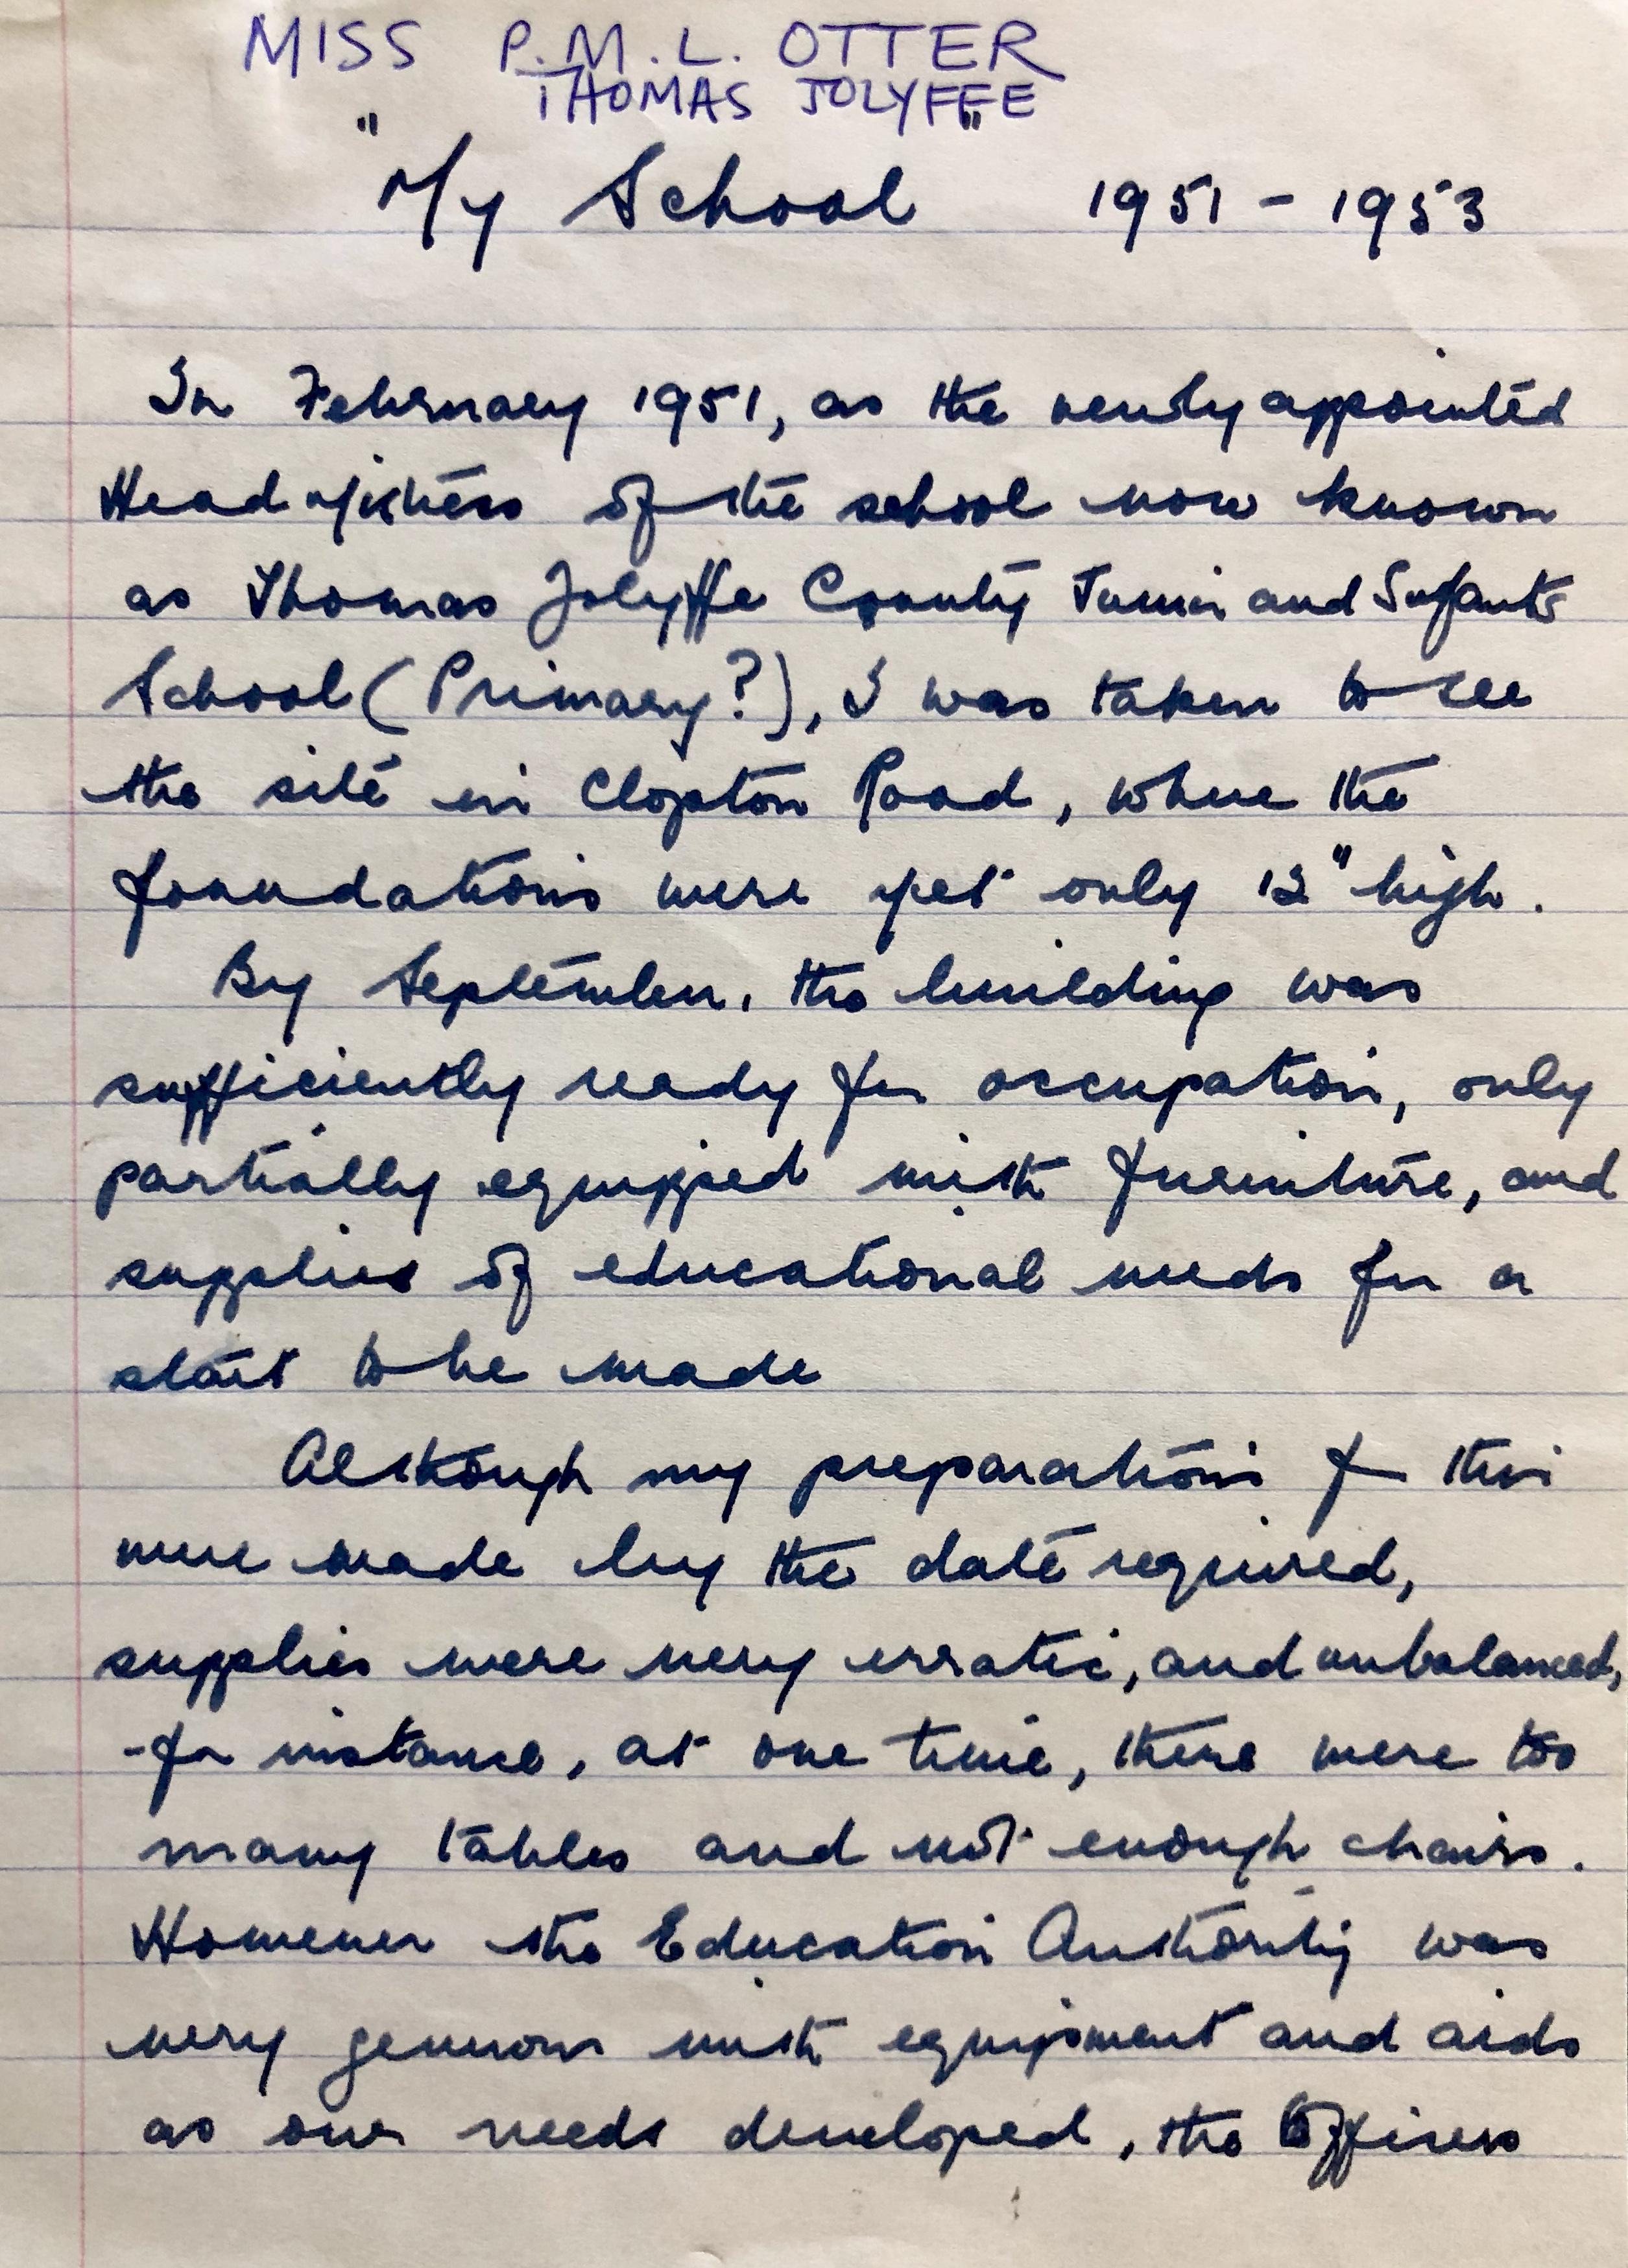 MISS P.M.L. OTTER
THOMAS JOLYFFE
"My School" 1951 - 1953
In February 1951, as the newly appointed
Head Mistress of the school now known
as Thomas Jolyffe County Junior and Infants
School (Primary?), I was taken to see
the site in Clopton Road, where the
foundations were yet only 12" high.
By September, the building was
sufficiently ready for occupation, only
partially equipped with furniture, and
supplies of educational needs for a
start to be made
Although my preparations for this
were made by the date required,
supplies were very erratic, and unbalanced,
-for instance, at one time, there were too
many tables and not enough chairs.
However the Education Authority was
very generous with equipment and aids
as our needs developed, the Officers